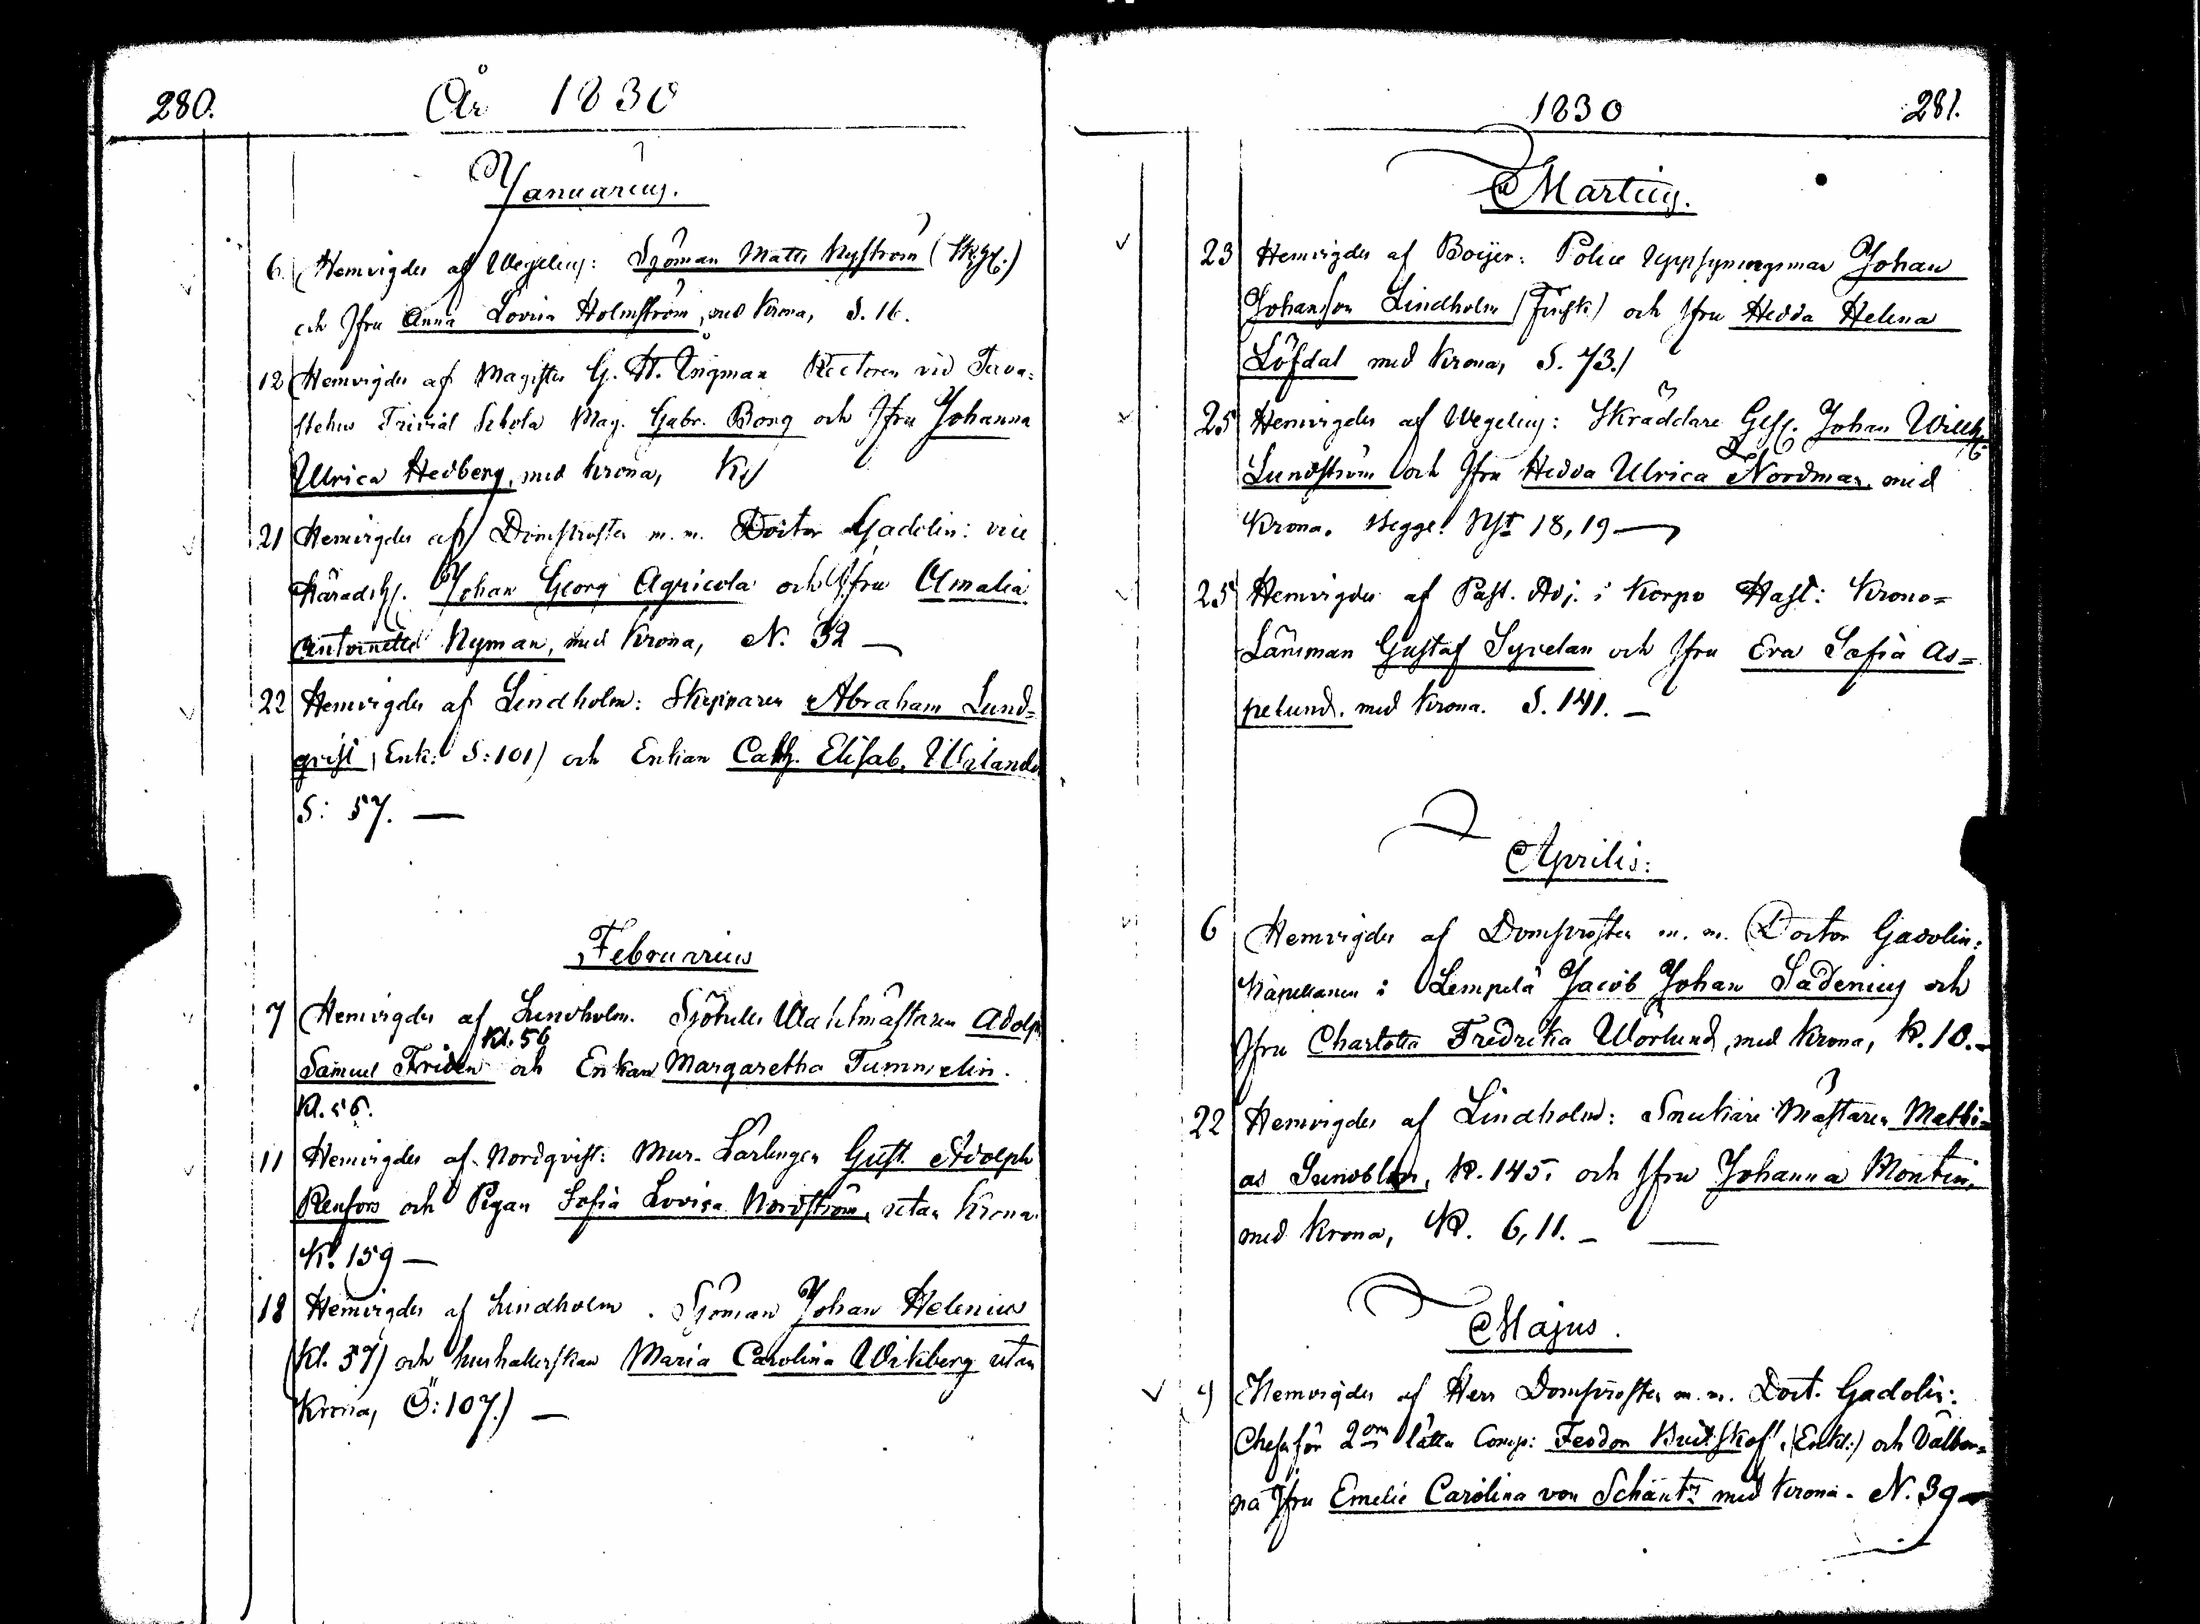 280.
År 1830
Januarius.
6. Hemvigdes af Wegelius: Sjöman Matts Nyström
och Jfru Anna Lovisa Holmström, med Krona, S. 16.
12 Hemvigdes af Magister G. H. Ingman Rectoren vid Tava-
stehus Trivial Schola Mag. Gabr. Bong och Jfru Johanna
Ulrica Hedberg, med Krona,
21 Hemvigdes af Domprosten m. m. Doctor Gadolin: vice
Häradsh. Johan Georg Agricola och Jfru Amalia
Antoinette Nyman, med Krona, N. 32 —
22 Hemvigdes af Lindholm: Skepparen Abraham Lund-
qvist (Enk: S: 101) och Enkan Cath. Elisab. Welande
S: 57. —
Februarius
7 Hemvigdes af Lindholm. Sjötulls Wachtmästaren Adolph
Kl. 56
Samuel Friden och Enkan Margaretha Tummelin.
Kl. 56.
11 Hemvigdes af Nordqvist: Mur-Lärlingen Gust. Adolph
Renfors och Pigan Sofia Lovisa Nordström, utan Krona
K. 159 —
18 Hemvigdes af Lindholm. Sjöman Johan Helenius
(Kl. 57) och hushållerskan Maria Carolina Wikberg utan
Krona, Ö: 107.) —
1830
281.
Martius.
23 Hemvigdes af Boijer: Police Uppsyningsman Johan
Johansson Lindholm (Finsk) och Jfru Hedda Helena
Löfdal med Krona, S. 73.)
25 Hemvigdes af Wegelius: Skräddare Ges. Johan Wilh:
Lundström och Jfru Hedda Ulrica Nordman, med
Krona. Begge: 18, 19 —
25 Hemvigdes af Past. Adj. i Korpo Hast: Krono-
Länsman Gustaf Syvelan och Jfru Eva Sofia As-
pelund. med Krona. S. 141. —
Aprilis:
6 Hemvigdes af Domprosten m. m. Doctor Gadolin:
Kapellanen i Lempelä Jacob Johan Sadenius och
Jfru Charlotta Fredrika Wörlund, med Krona, K. 10. —
22 Hemvigdes af Lindholm: Snickare Mästaren Mathi-
as Sundblom, K. 145. och Jfru Johanna Montin,
med Krona, K. 6, 11. —
Majus.
9 Hemvigdes af Herr Domprosten m. m. Doct. Gadolin:
Chefen för 2om lätta Comp: Feodor (Enkl:) och Välbor-
na Jfru Emelie Carolina von Schantz med Krona. N. 39 —